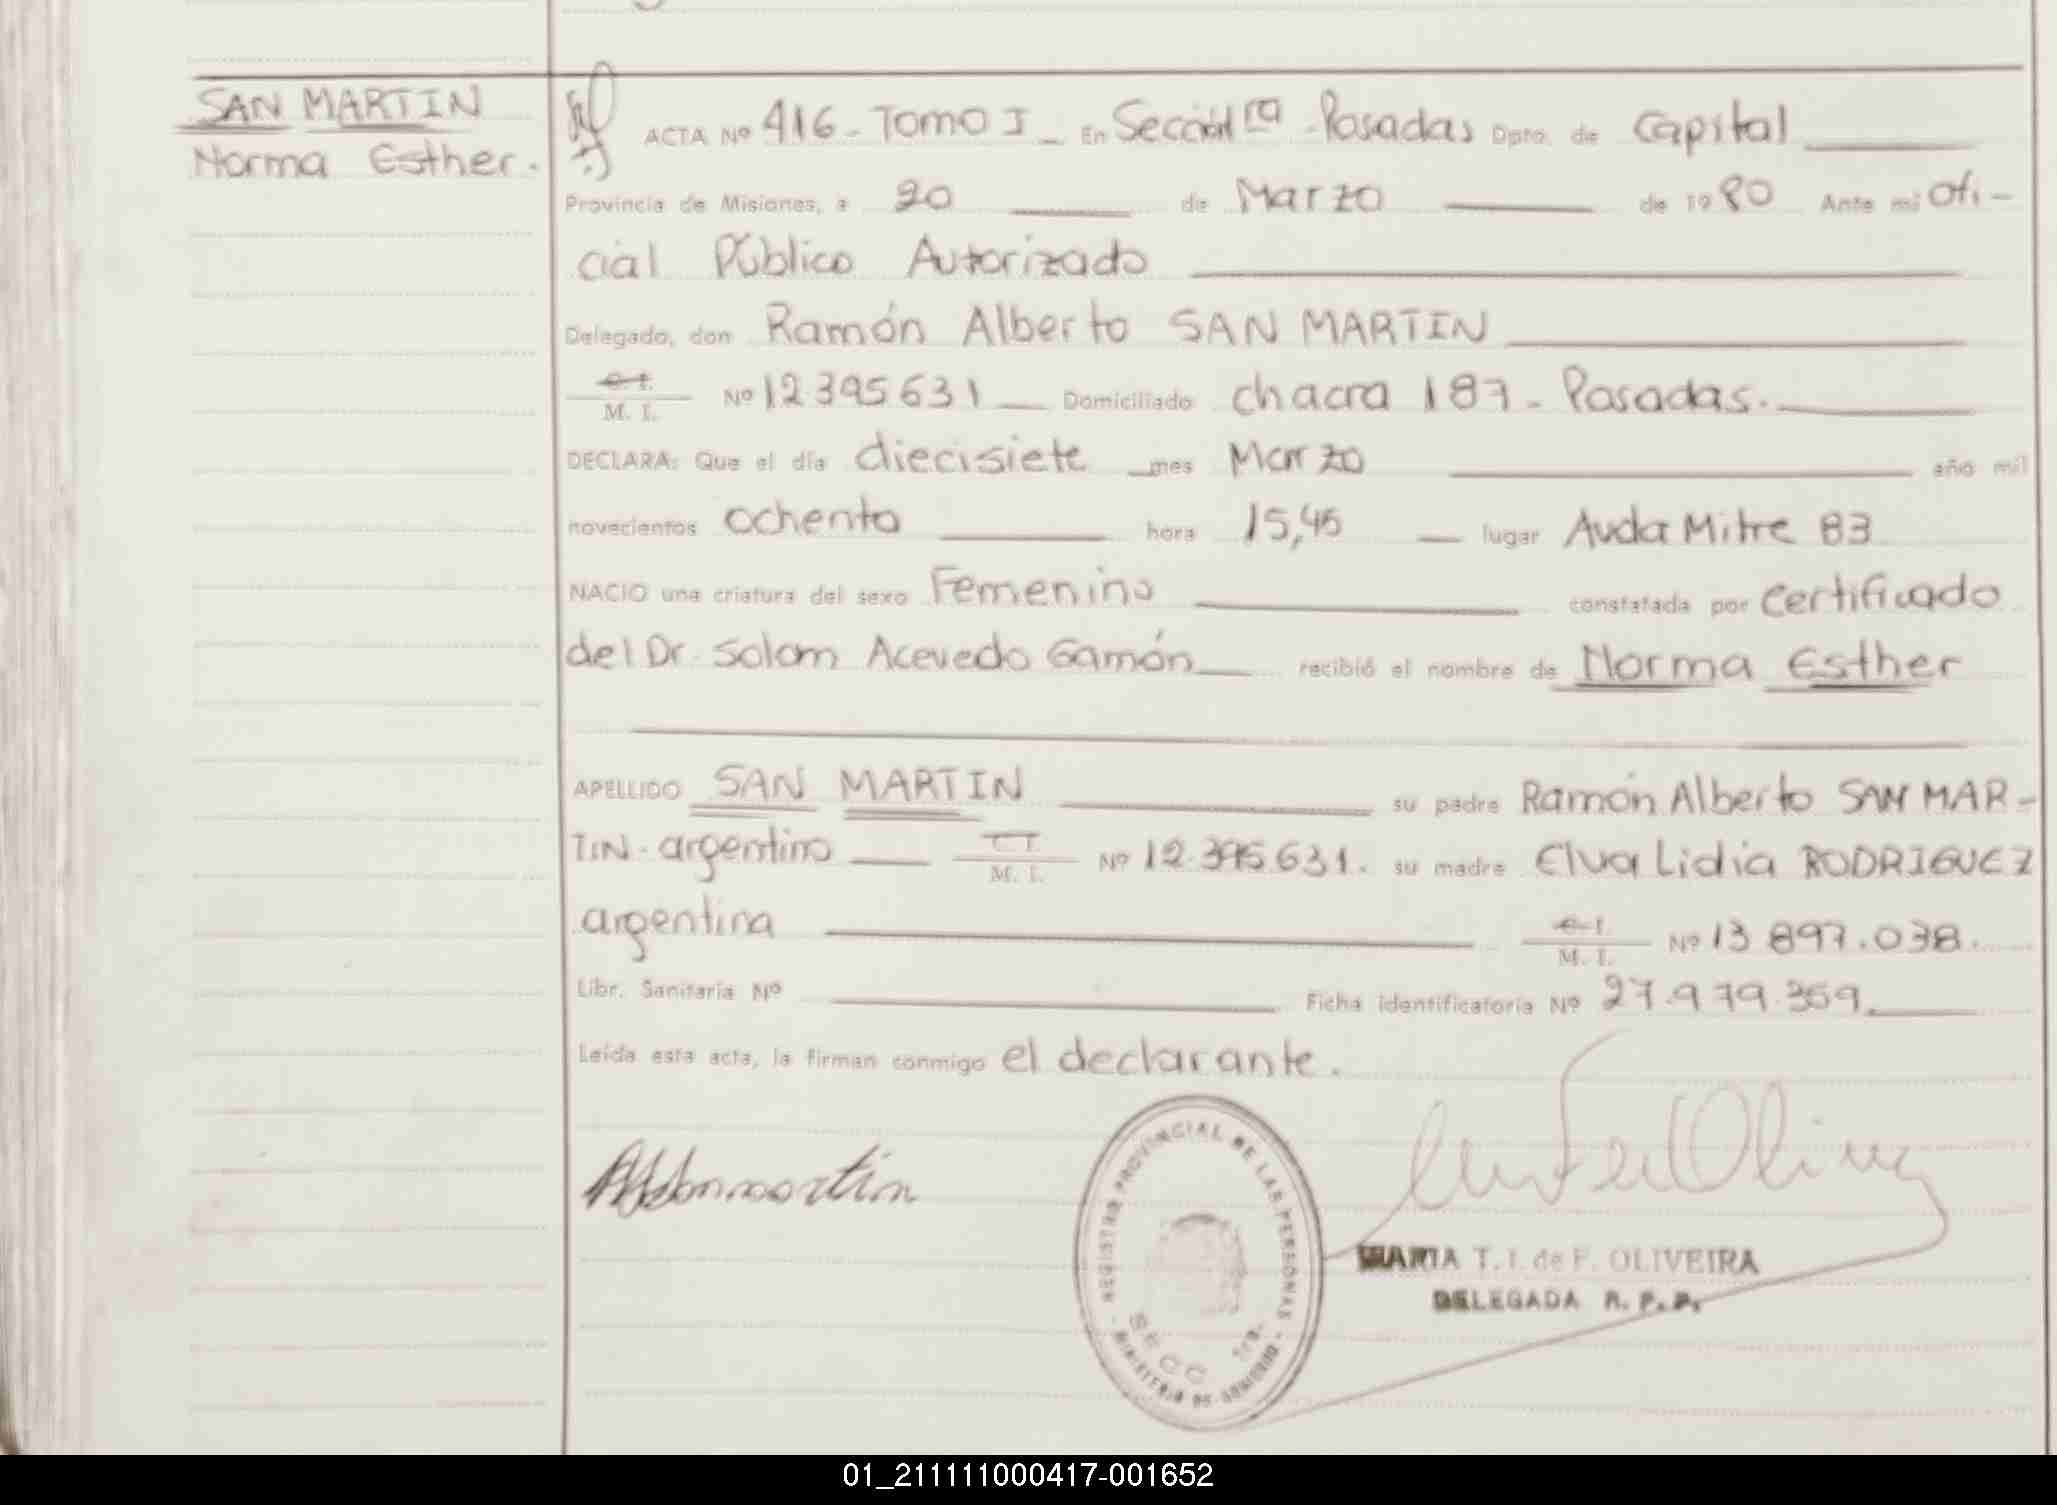 SAN MARTIN
Norma Esther.
ACTA Nº 416 - Tomo I - En Sección 1ra - Posadas Dpto. de Capital
Provincia de Misiones, a 20 de Marzo de 1980 Ante mi Ofi-
cial Público Autorizado
Delegado, don Ramón Alberto SAN MARTIN
C.I. M. I. Nº 12.395.631 Domiciliado chacra 187 - Posadas.
DECLARA: Que el día diecisiete mes Marzo año mil
novecientos ochenta hora 15,45 lugar Avda Mitre 83
NACIO una criatura del sexo Femenino constatada por certificado
del Dr. Solom Acevedo Gamón recibió el nombre de Norma Esther
APELLIDO SAN MARTIN su padre Ramón Alberto SAN MAR-
TIN - argentino C.I. M. I. Nº 12.395.631. su madre Elva Lidia RODRIGUEZ
argentina C.I. M. I. Nº 13.897.038.
Libr. Sanitaria Nº Ficha identificatoria Nº 27.979.359
Leída esta acta, la firman conmigo el declarante.
REGISTRO PROVINCIAL DE LAS PERSONAS
SECC 1ra.
- MINISTERIO DE GOBIERNO -
MARIA T. I. de F. OLIVEIRA
DELEGADA R. P. P.
01_211111000417-001652